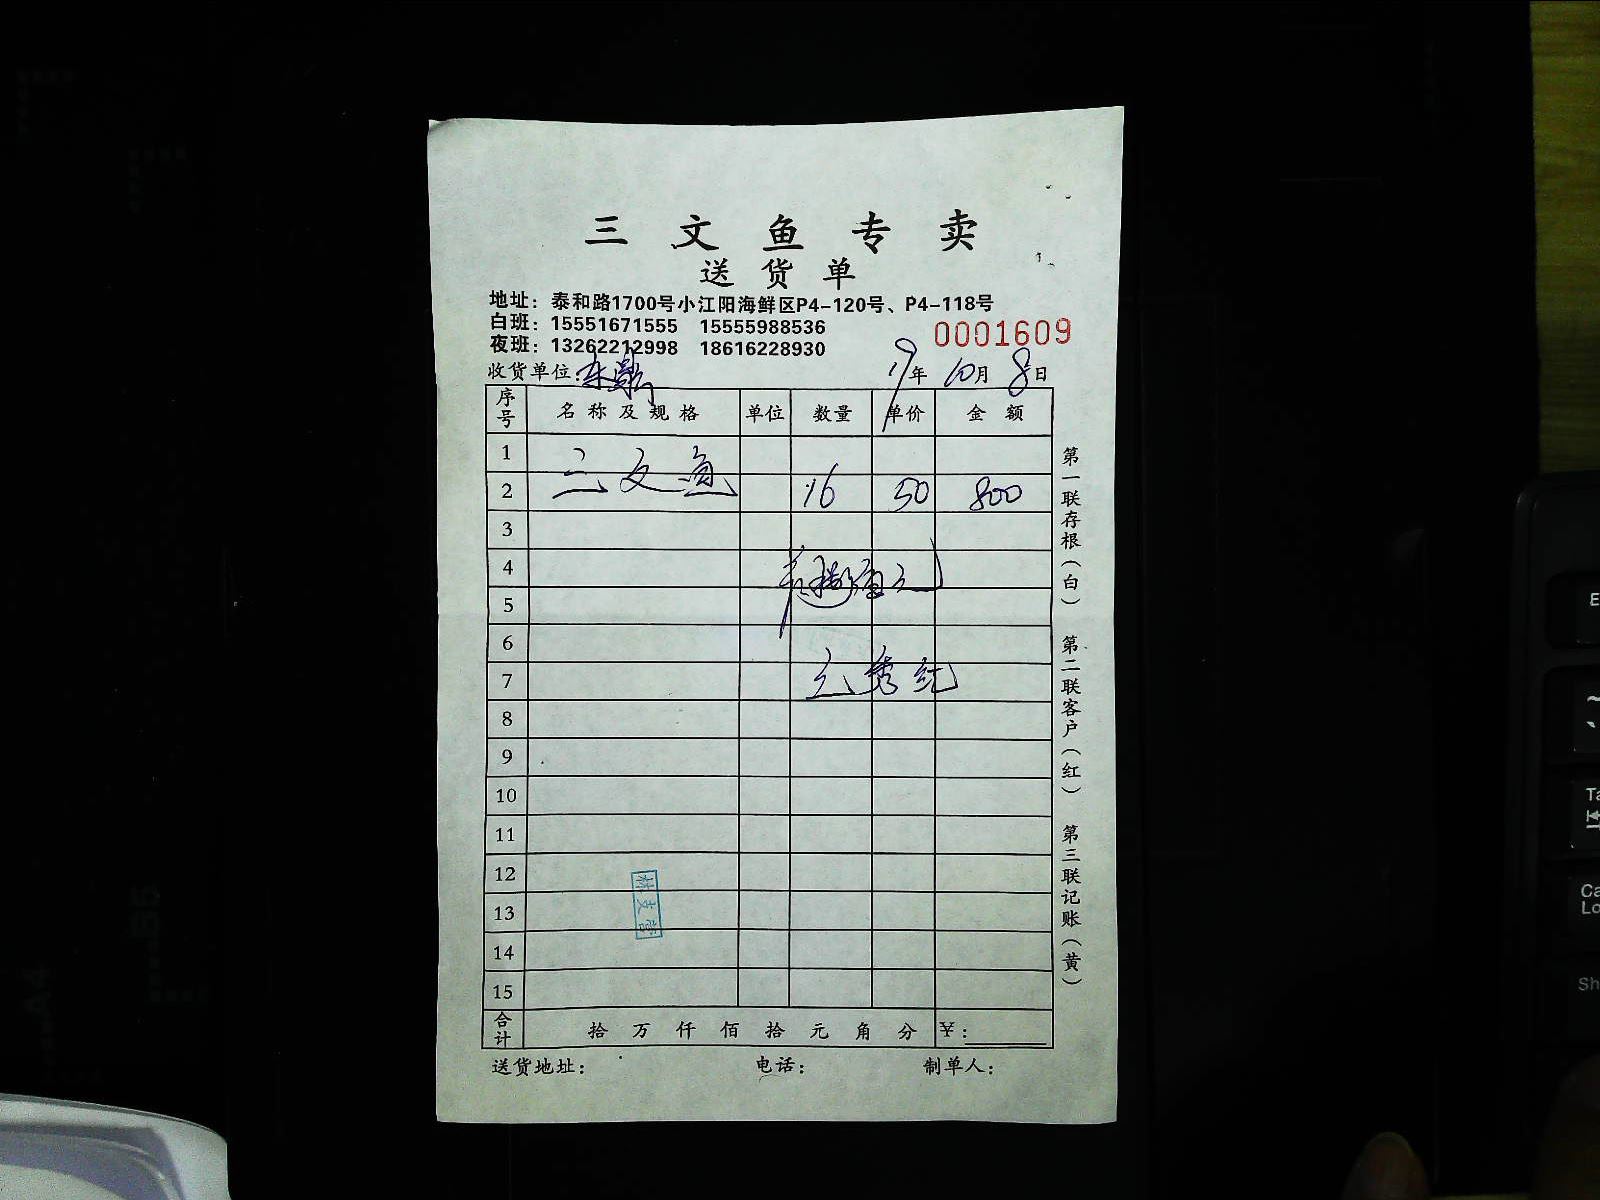 三文鱼专卖
送货单
地址：泰和路1700号小江阳海鲜区P4-120号、P4-118号
白班：15551671555 15555988536
夜班：13262212998 18616228930
0001609
收货单位： 19年10月8日
序号 名称及规格 单位 数量 单价 金额
1
三文鱼
2 16 50 800
3
4
5
6
7
8
9
10
11
12
13
14
15
合计 拾 万 仟 佰 拾 元 角 分 ¥：
送货地址： 电话： 制单人：
第一联存根（白） 第二联客户（红） 第三联记账（黄）
E
Ta
Ca
Lo
Sh